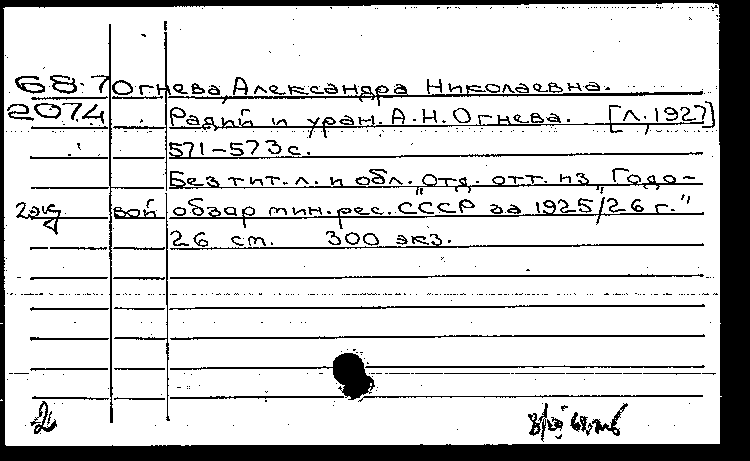 68.7 Огнева, Александра Николаевна.
2074 Радий и уран. А.Н.Огнева. [Л., 1927]
571-573 с.
Без тит. л. и обл. "Отд. отт. из „Годо-
2 экз вой обзор мин. рес. СССР за 1925/26 г."
26 см. 300 экз.
2